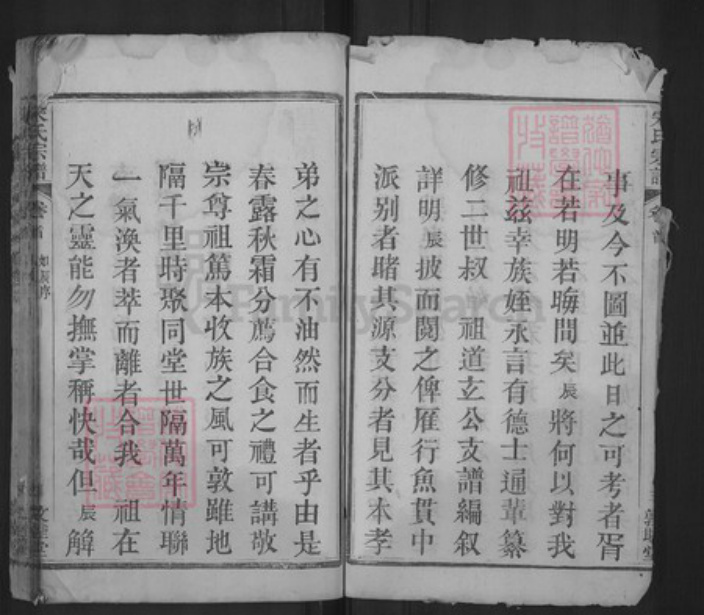 事及今不圖並此日之可考者胥
在若明若晦間矣辰將何以對我
祖茲幸族姪永言有德士通輩纂
修二世叔 祖道立公支譜編叙
詳明辰披而閱之俾雁行魚貫中
派别者睹其源支分者見其本孝
弟之心有不油然而生者乎由是
春露秋霜分薦合食之禮可講敬
宗尊祖篤本收族之風可敦雖地
隔千里時聚同堂世隔萬年情聯
一氣渙者萃而離者合我 祖在
天之靈能勿撫掌稱快哉但辰解
氏宗譜
卷首
FamilySearch